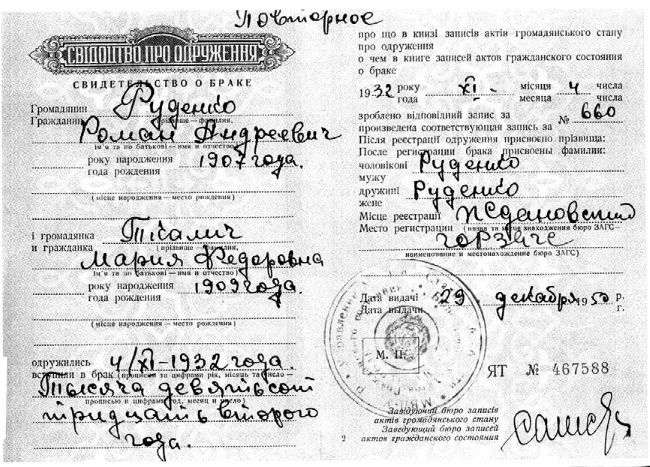 Повторное
СВІДОЦТВО ПРО ОДРУЖЕННЯ
СВИДЕТЕЛЬСТВО О БРАКЕ
Громадянин Руденко
Гражданин
прізвище — фамилия,
Роман Андреевич
ім'я та по батькові — имя и отчество
року народження 1907 года.
года рождения
(місце народження — место рождения)
і громадянка
и гражданка
(прізвище — фамилия,
Мария Федоровна
ім'я та по батькові — имя и отчество)
року народження 1909 года.
года рождения
(місце народження — место рождения)
одружились 4/XI-1932 года.
вступили в брак (прописом та цифрами рік, місяць та число —
Тысяча девятьсот
прописью и цифрами год, месяц и число)
тридцать второго
года.
про що в книзі записів актів громадянського стану
про одруження
о чем в книге записей актов гражданского состояния
о браке
1932 року XI місяця 4 числа
года месяца числа
зроблено відповідний запис за № 660
произведена соответствующая запись за
Після реєстрації одруження присвоєно прізвища:
После регистрации брака присвоены фамилии:
чоловікові Руденко
мужу
дружині Руденко
жене
Місце реєстрації Ждановский
Место регистрации (назва та місце знаходження бюро ЗАГС —
горЗагс
наименование и местонахождение бюро ЗАГС)
Дата видачі 29 декабря 1950 р.
Дата выдачи г.
М. П.
ЯТ № 467588
Завідуючий бюро записів
актів громадянського стану
Заведующий бюро записей
актов гражданского состояния
2